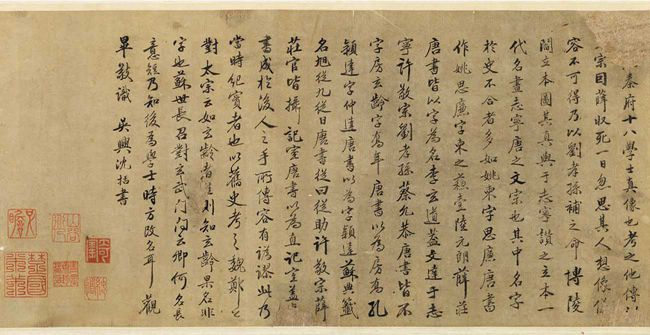 秦府十八學士真像也考之他傳
宗因薛收死一日忽思其人想像儀
容不可得乃以劉孝孫補之命 博陵
閻立本圖其真與于志寧讚之立本一
代名畫志寧唐之文宗也其中名字
於史不合者多如姚柬字思廉唐書
作姚思廉字柬之蘇壹陸元朗薛莊
唐書皆以字為名李玄道蓋文達于志
寧許敬宗劉孝孫蔡允恭唐書皆不
字房玄齡字喬年唐書以為房喬孔
穎達字仲達唐書以為字穎達蘇典籤
名旭從九從日唐書從曰從助許敬宗薛
莊官皆攝記室唐書以為直記室蓋
書成於後人之手所傳容有譌謬此乃
當時紀實者也以舊史考之魏鄭公
對太宗云如玄齡者則知玄齡果名非
字也蘇世長召對玄武門問云卿何名長
意短乃知後為學士時方改名耳 觀
畢敬識 吳興沈括書